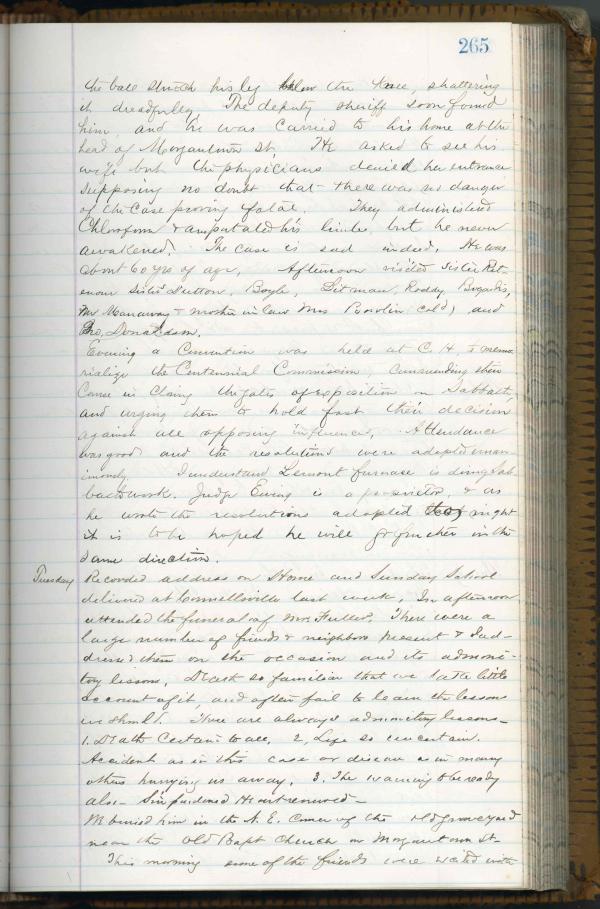 265
the ball struck his leg below the knee, shattering
it dreadfully. The deputy sheriff soon found
him, and he was carried to his home at the
head of Morgantown St, He asked to see his
wife but the physicians denied her entrance
supposing no doubt that there was no danger
of the case proving fatal. They administered
Chloroform & amputated his limb, but he never
awakened. The case is sad indeed. He was
about 60 yrs of age, Afternoon visited Sister
Sister Sutton, Boyle, Pitman, Roddy,
Mr & mother in law Mrs (cold) and
Geo, Donaldson.
Evening a Convention was held at C. H. to memo
rialize the Centennial Commission, commending their
course in closing the gates of exposition on Sabbath,
and urging them to hold fast their decision
against all opposing influences, Attendance
was good and the resolutions were adopted unan
imously. I understand Lemont furnace is doing Sab
bath work. Judge Ewing is a proprietor, & as
he wrote the resolutions adopted night
it is to be hoped he will go further in the
same direction.
Tuesday Recorded address on Home and Sunday School
delivered at Connellsville last week, In afternoon
attended the funeral of Mr. Fuller. There were a
large number of friends & neighbors present & I ad-
dressed them on the occasion and its admoni-
tory lessons, Death so familiar that we take little
account of it, and often fail to learn the lessons
we should. There are always admonitory lessons -
1. Death Certain to all, 2, Life so uncertain.
Accident as in this case or disease as in many
others hurrying us away. 3. The warning to be ready
also - Sin pardoned Heart renewed -
We buried him in the N. E. Corner of the old graveyard
near the old Bapt Church on Morgantown St -
This morning some of the friends were with